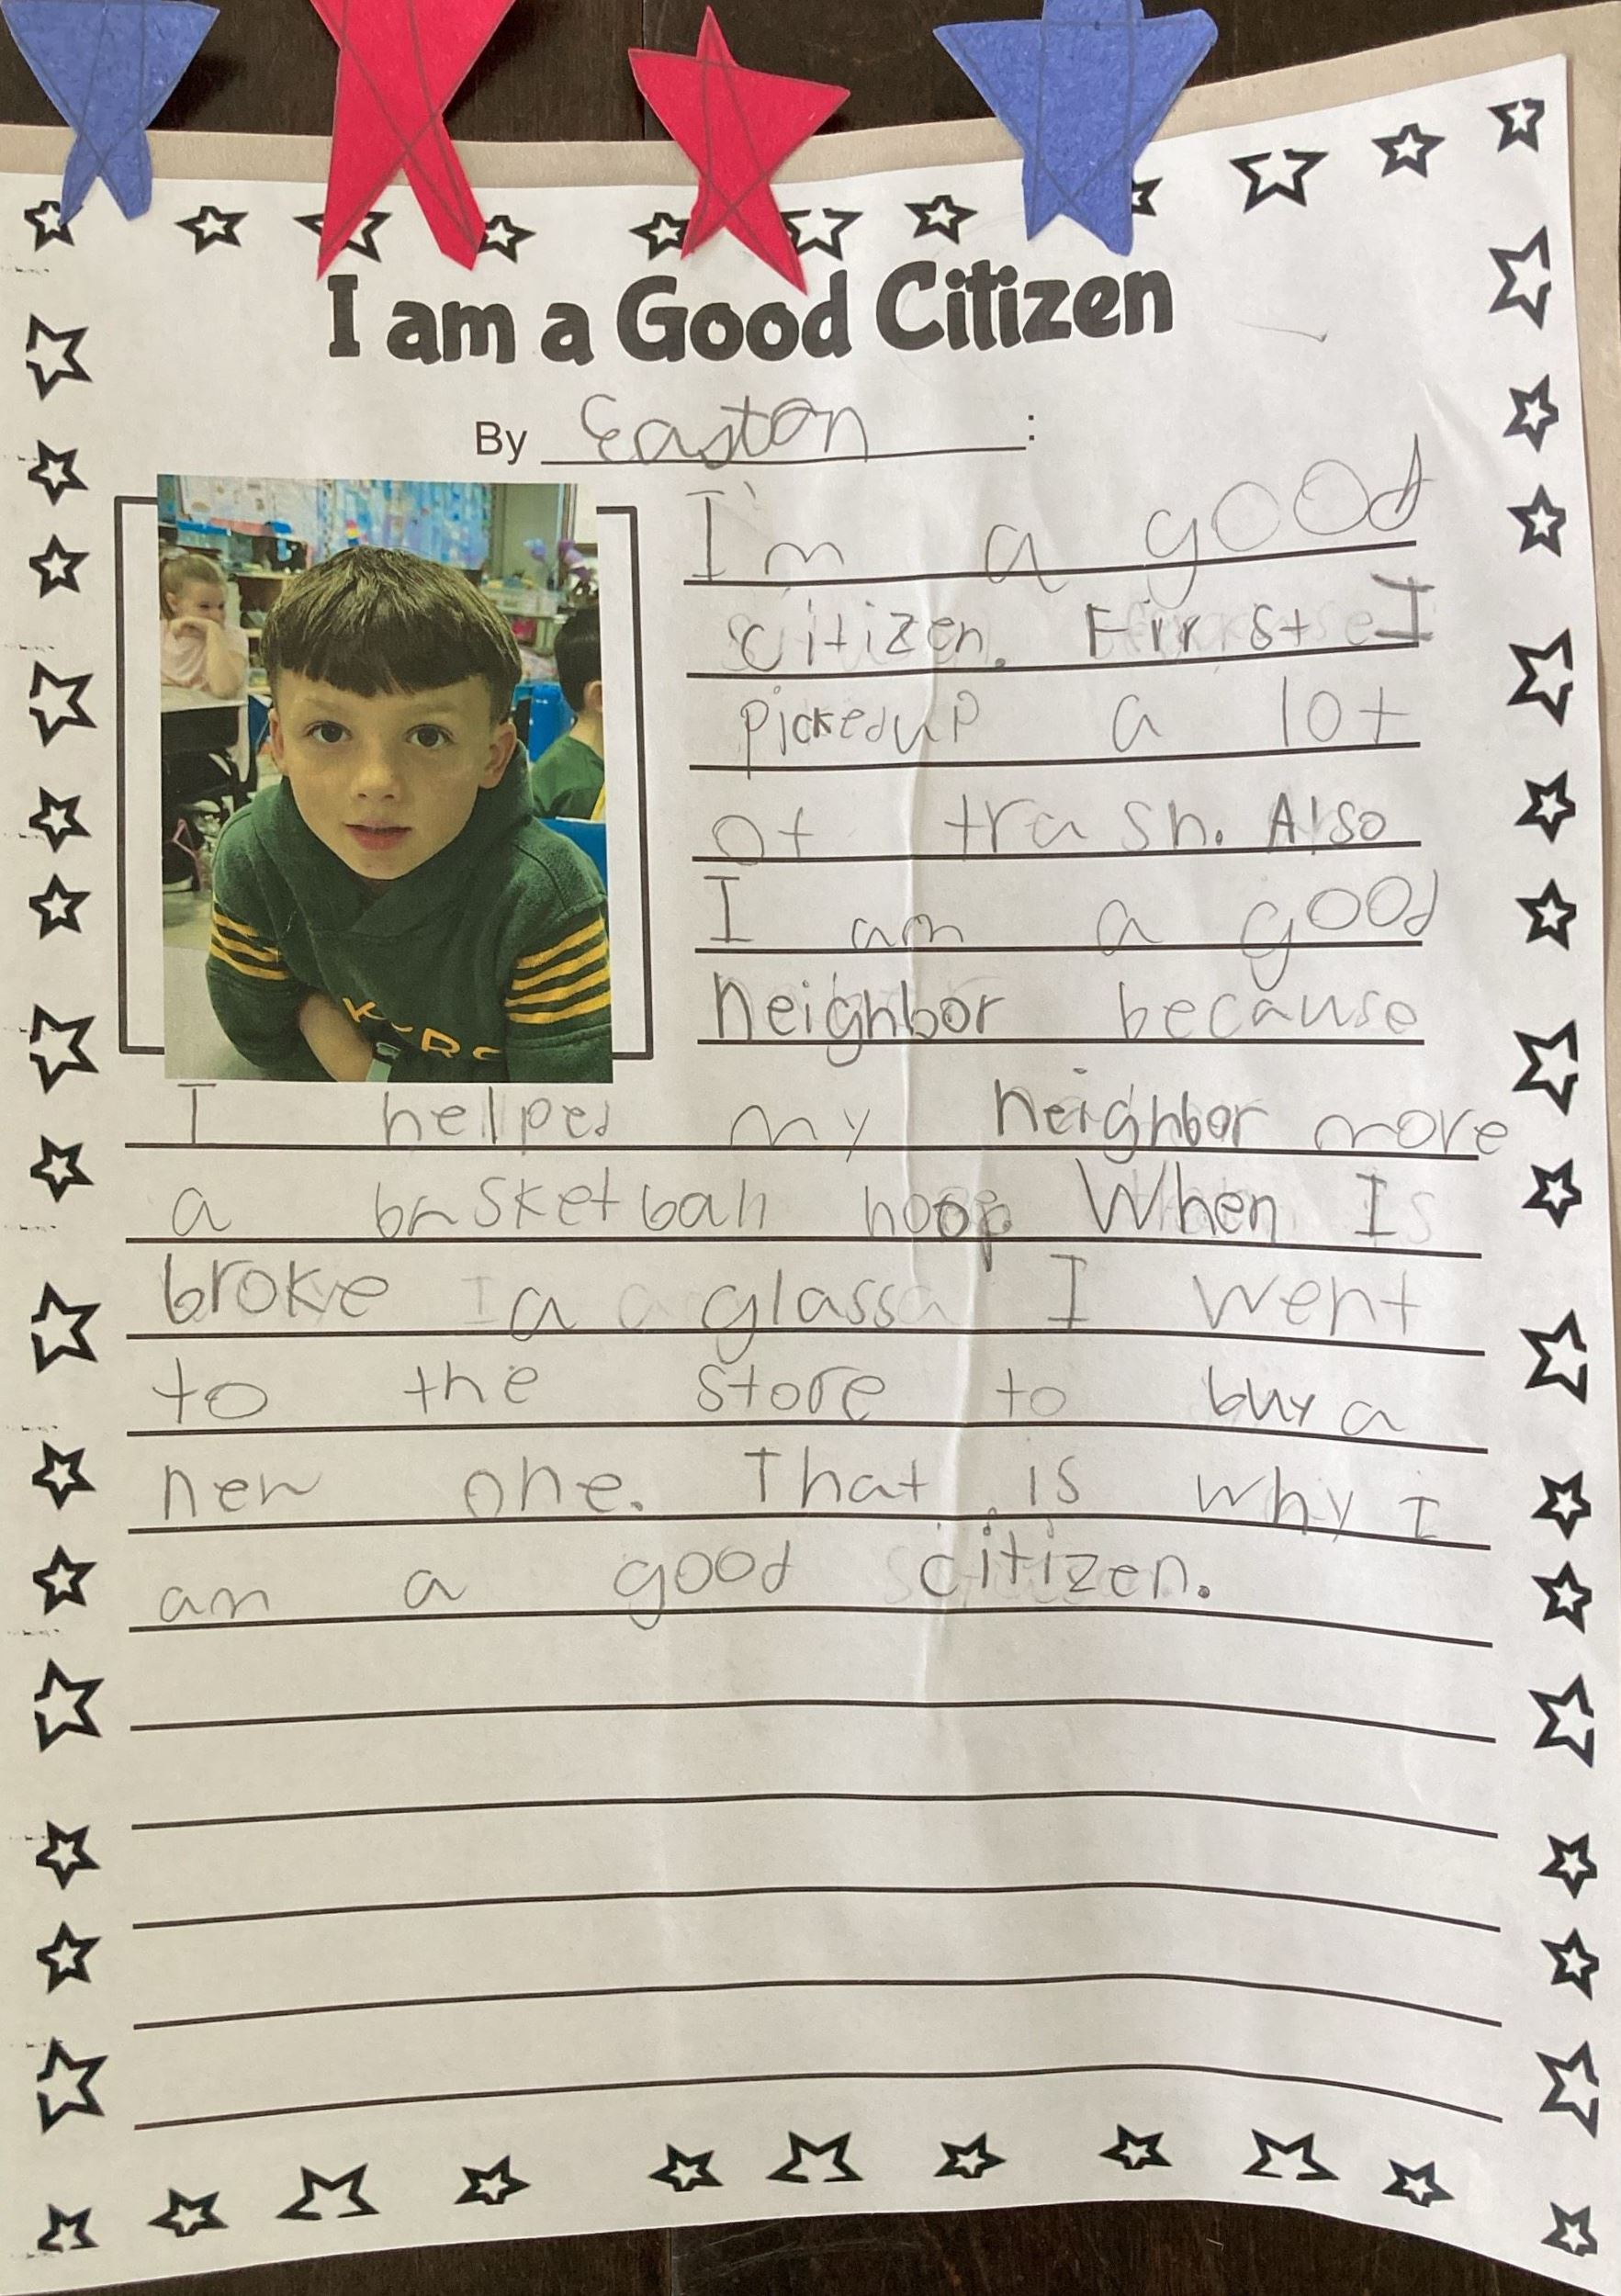 I am a Good Citizen
By Easton :
I'm a good
citizen. First I
picked up a lot
of trash. Also
I am a good
neighbor because
I helped my neighbor more
a basketball hoop. When I
broke a glass I went
to the store to buy a
new one. That is why I
am a good citizen.